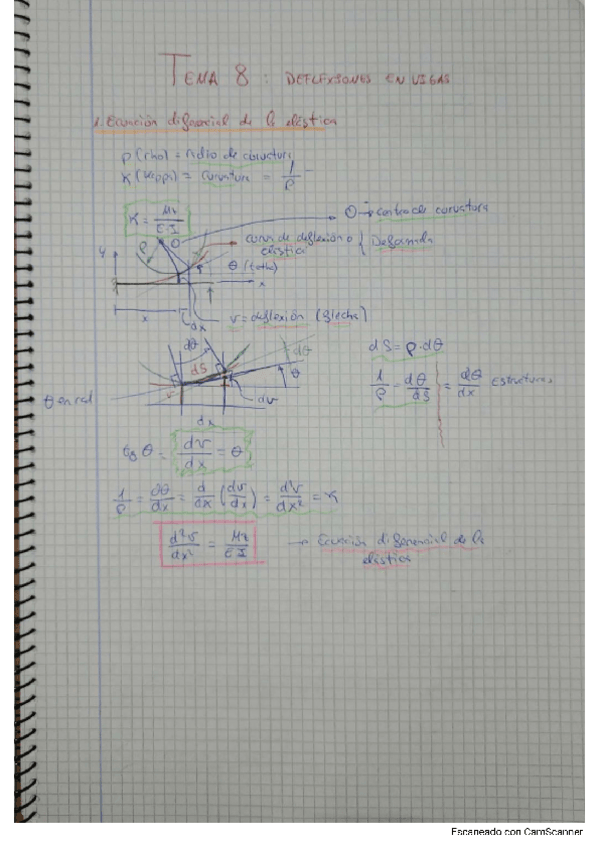 TEMA 8: DEFLEXIONES EN VIGAS
1. Ecuación diferencial de la elástica
ρ (rho) = radio de curvatura
K (kappa) = curvatura = 1/ρ
K = Mz/EI
O → centro de curvatura
curva de deflexión o elástica { Deformada
y
ρ
O
θ (theta)
x
x
dx
v = deflexión (flecha)
dθ
dS
dθ
θ
dv
dx
θ en rad
dS = ρ·dθ
1/ρ = dθ/dS = dθ/dx Estructuras
tg θ = dv/dx = θ
1/ρ = dθ/dx = d/dx (dv/dx) = d²v/dx² = K
d²v/dx² = Mz/EI → Ecuación diferencial de la
elástica
Escaneado con CamScanner